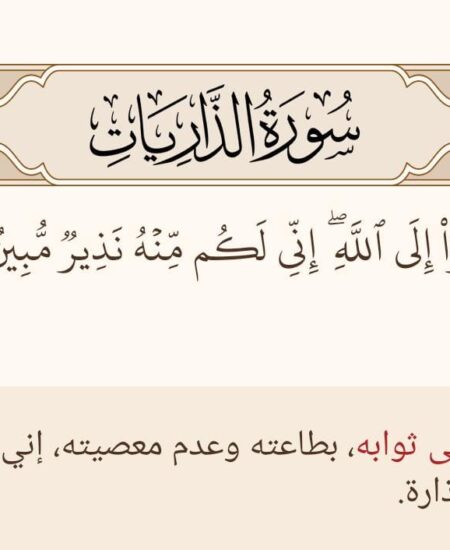 سُورَةُ الذَّارِيَاتِ
إِلَى ٱللَّهِۖ إِنِّي لَكُم مِّنۡهُ نَذِيرٞ مُّبِينٞ
ثوابه، بطاعته وعدم معصيته، إني